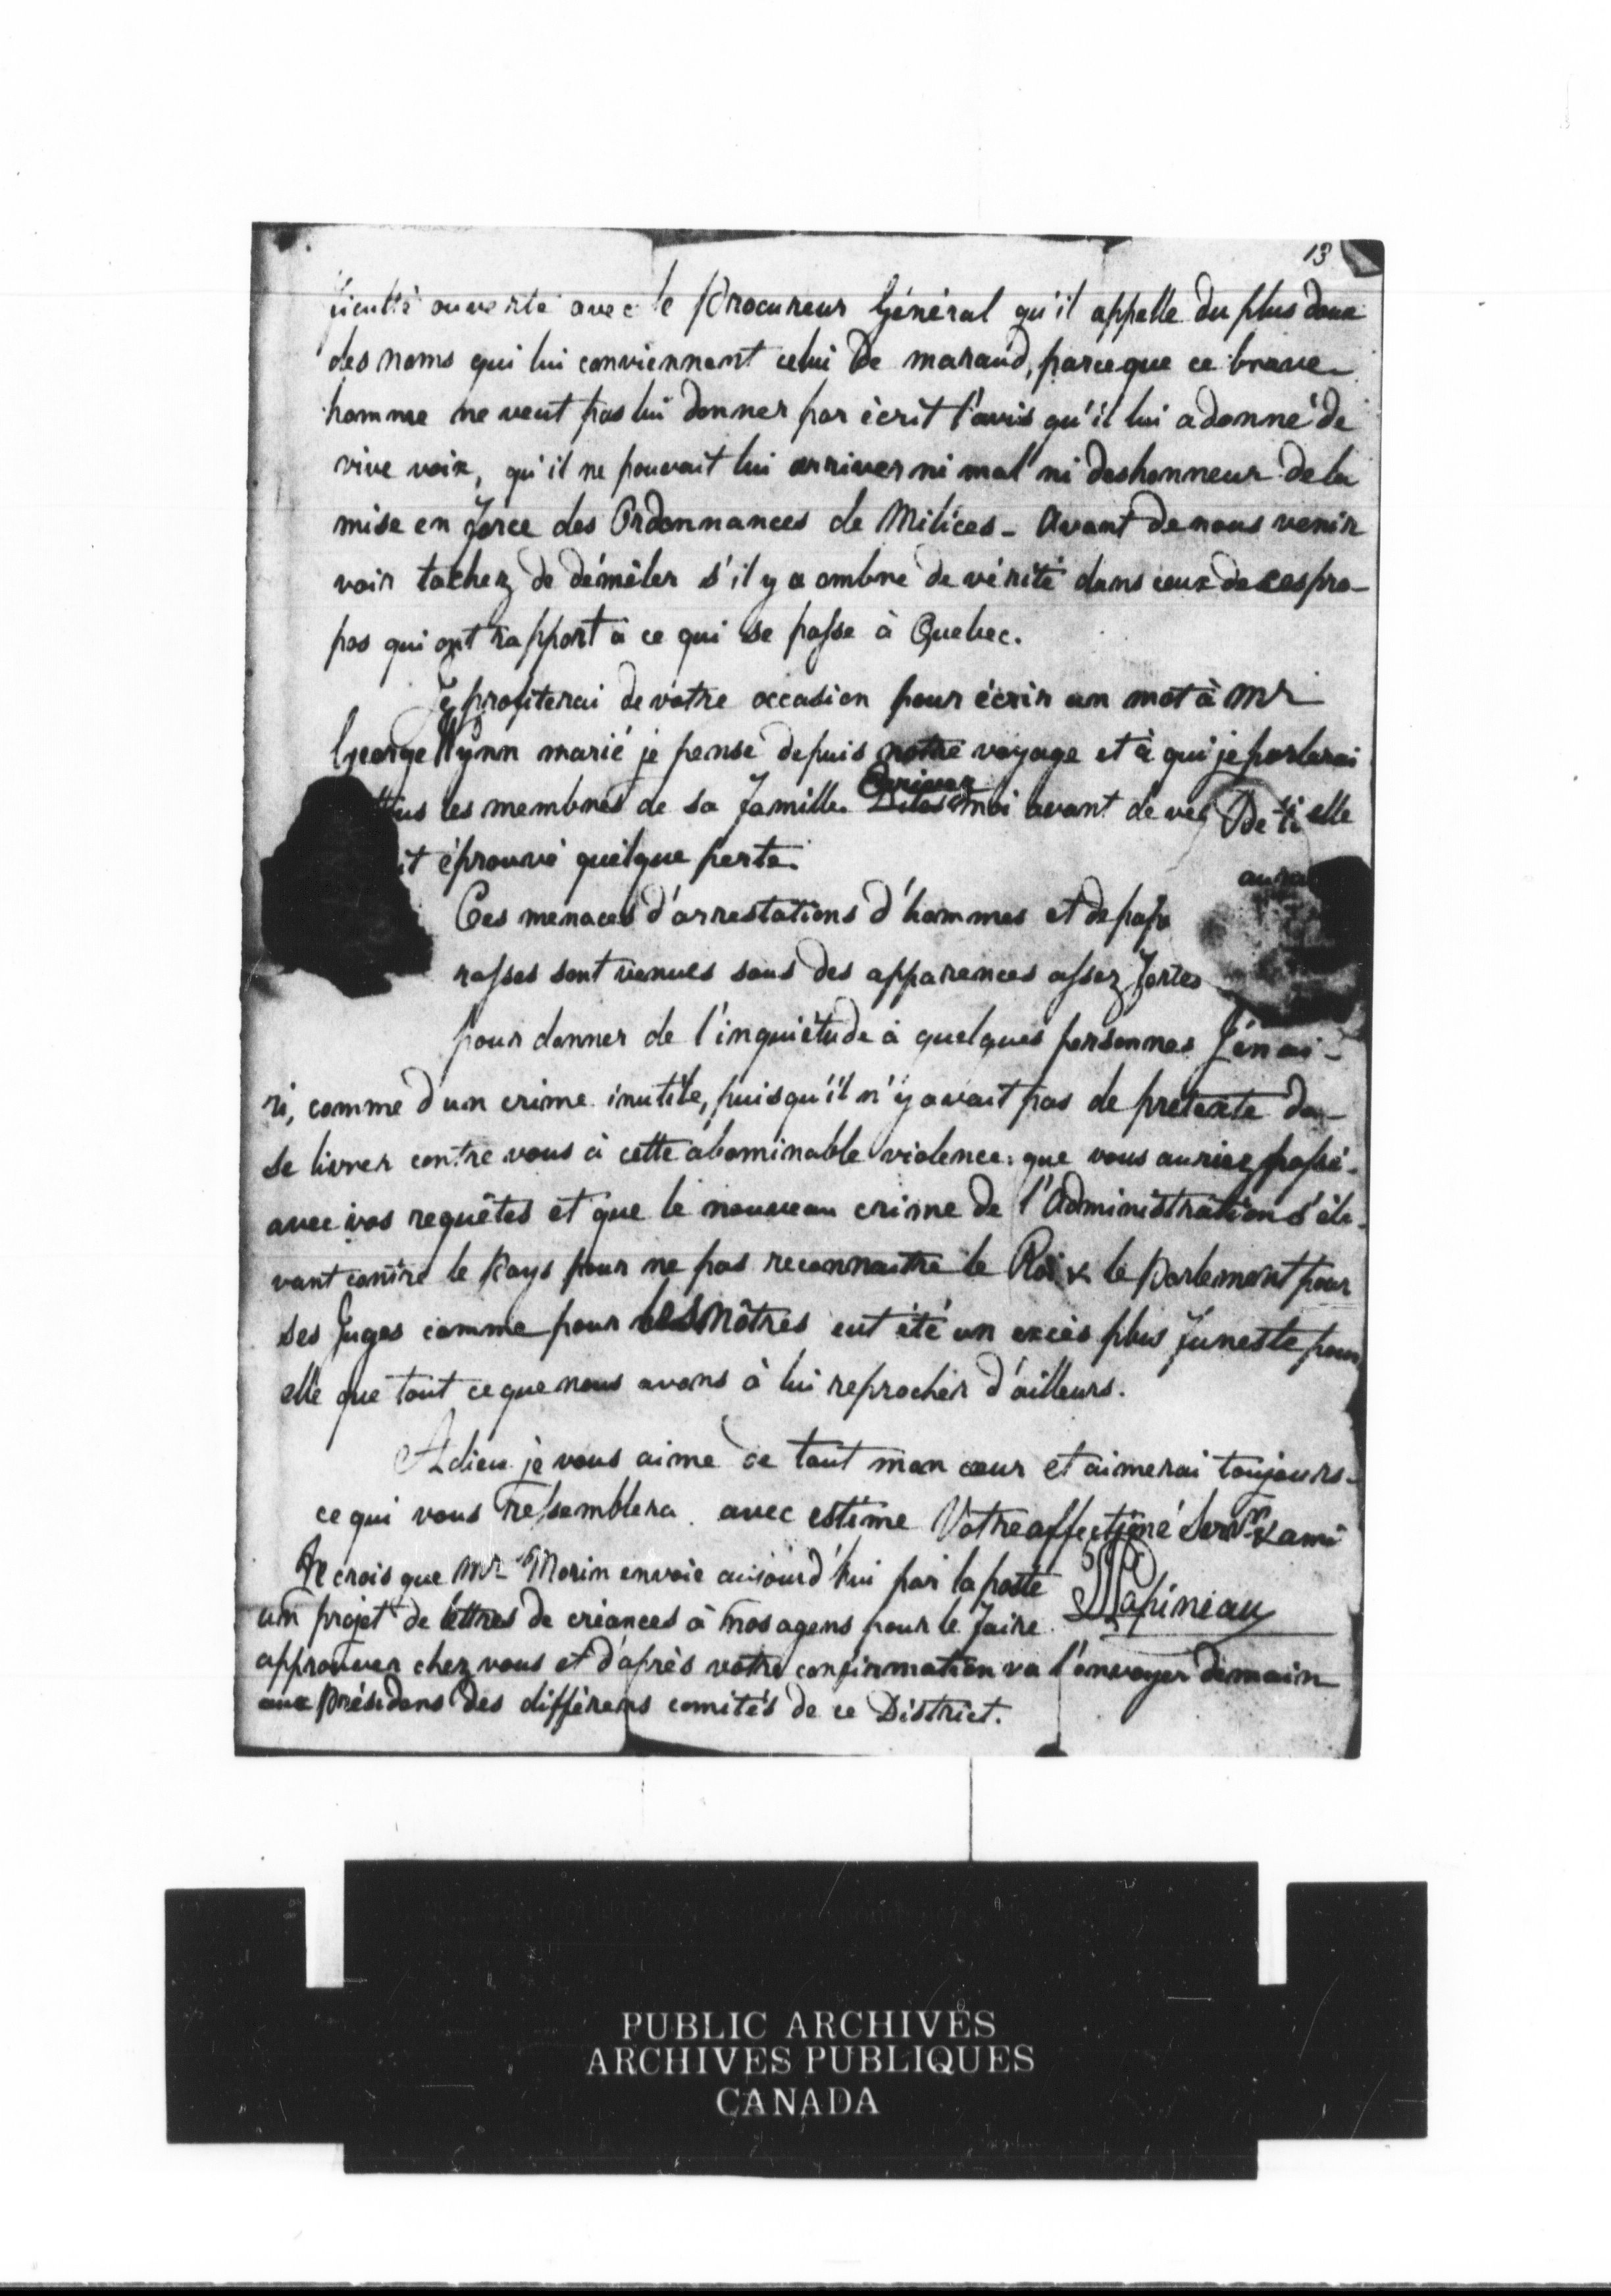 13
ficulté ouverte avec le Procureur Général qu'il appelle du plus doux
des noms qui lui conviennent celui de maraud, parceque ce brave
homme ne veut pas lui donner par écrit l'avis qu'il lui a donné de
vive voix, qu'il ne pouvait lui arriver ni mal ni deshonneur de la
mise en force des Ordonnances de Milices - Avant de nous venir
voir tachez de démêler s'il y a ombre de vérité dans ceux de ces pro-
pos qui ont rapport à ce qui se passe à Quebec.
Je profiterai de votre occasion pour écrir un mot à Mr
George Rynn marié je pense depuis notre voyage et à qui je parlerai
les membres de sa famille. Ecrivez
moi avant de si elle
éprouvé quelque perte.
Ces menaces d'arrestations d'hommes et de pape
rasses sont venues sous des apparences assez fortes
pour donner de l'inquiètude à quelques personnes J'en ai
ri, comme d'un crime inutile, puisqu'il n'y avait pas de pretexte de
se livrer contre vous à cette abominable violence: que vous auriez passé
avec vos requêtes et que le nouveau crime de l'Administration s'éle-
vant contre le Pays pour ne pas reconnaître le Roi & le Parlement pour
ses Juges comme pour les nôtres eut été un excès plus funeste pour
elle que tout ce que nous avons à lui reprocher d'ailleurs.
Adieu je vous aime de tout mon cœur et aimerai toujours
ce qui vous ressemblera. avec estime Votre affectionné Servr & ami
Je crois que Mr Morin envoie aujourd'hui par la poste
LJPapineau
un projet de lettres de créances à nos agens pour le faire
approuver chez vous et d'après votre confirmation va l'envoyer demain
aux présidens des différens comités de ce District.
PUBLIC ARCHIVES
ARCHIVES PUBLIQUES
CANADA